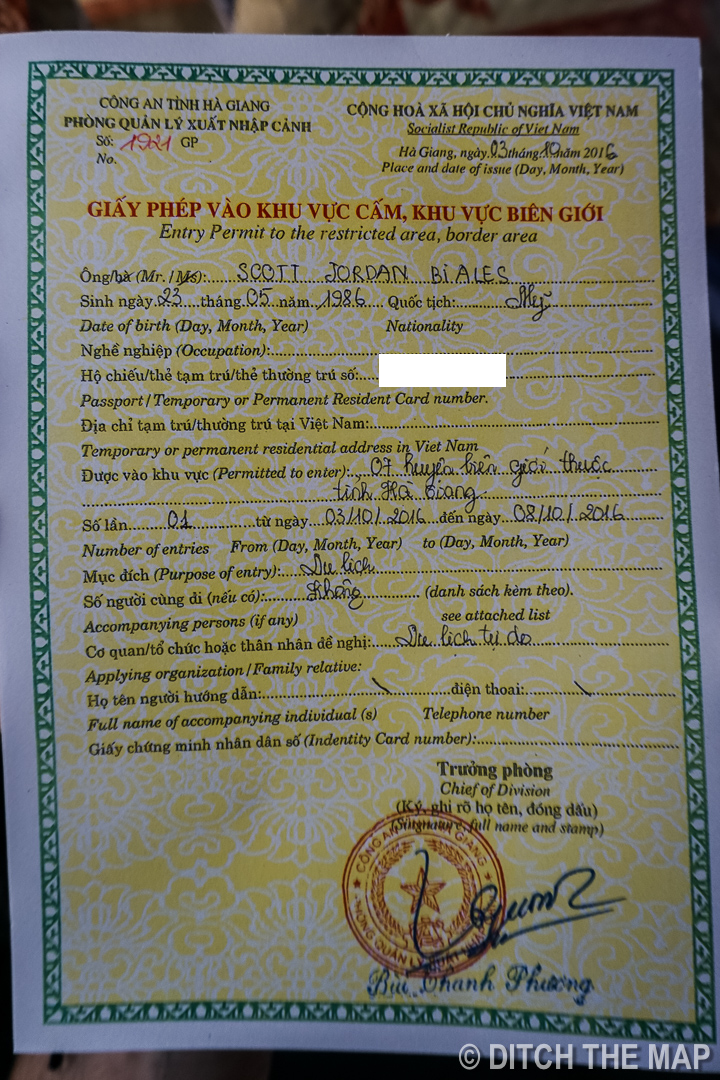 CÔNG AN TỈNH HÀ GIANG
PHÒNG QUẢN LÝ XUẤT NHẬP CẢNH
Số: 1921 GP
No.
CỘNG HOÀ XÃ HỘI CHỦ NGHĨA VIỆT NAM
Socialist Republic of Viet Nam
Hà Giang, ngày 03 tháng 10 năm 2016
Place and date of issue (Day, Month, Year)
GIẤY PHÉP VÀO KHU VỰC CẤM, KHU VỰC BIÊN GIỚI
Entry Permit to the restricted area, border area
Ông/bà (Mr. / Ms): SCOTT JORDAN BIALES
Sinh ngày 23 tháng 05 năm 1986 Quốc tịch: Mỹ
Date of birth (Day, Month, Year) Nationality
Nghề nghiệp (Occupation):
Hộ chiếu/thẻ tạm trú/thẻ thường trú số:
Passport / Temporary or Permanent Resident Card number.
Địa chỉ tạm trú/thường trú tại Việt Nam:
Temporary or permanent residential address in Viet Nam
Được vào khu vực (Permitted to enter): 07 huyện biên giới thuộc
tỉnh Hà Giang
Số lần 01 từ ngày 03/10/2016 đến ngày 08/10/2016
Number of entries From (Day, Month, Year) to (Day, Month, Year)
Mục đích (Purpose of entry): Du lịch
Số người cùng đi (nếu có): Không (danh sách kèm theo).
Accompanying persons (if any) see attached list
Cơ quan/tổ chức hoặc thân nhân đề nghị: Du lịch tự do
Applying organization / Family relative:
Họ tên người hướng dẫn: \ điện thoại: \
Full name of accompanying individual (s) Telephone number
Giấy chứng minh nhân dân số (Indentity Card number):
Trưởng phòng
Chief of Division
(Ký, ghi rõ họ tên, đóng dấu)
(Signature, full name and stamp)
CÔNG AN GIANG
PHÒNG QUẢN LÝ XUẤT
Bùi Thanh Phương
© DITCH THE MAP